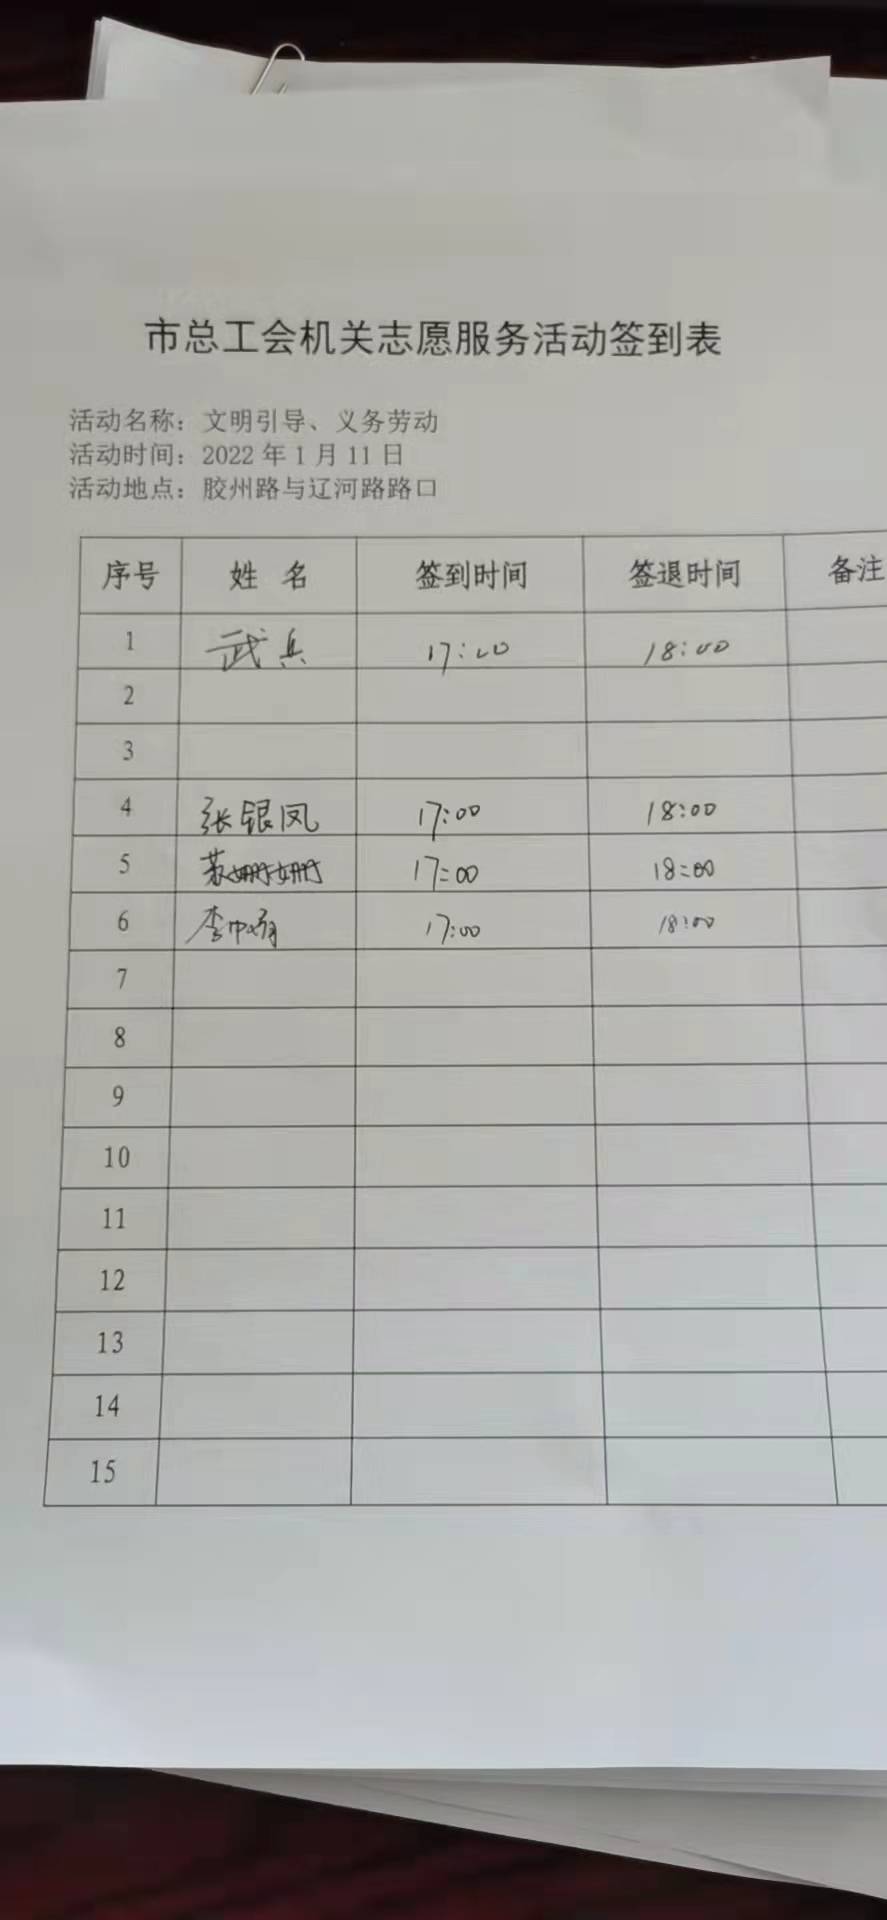 市总工会机关志愿服务活动签到表
活动名称：文明引导、义务劳动
活动时间：2022年1月11日
活动地点：胶州路与辽河路路口
序号 姓 名 签到时间 签退时间 备注
1 武兵 17:00 18:00
2
3
4 张银凤 17:00 18:00
5 苏姗姗 17:00 18:00
6 李 17:00 18:00
7
8
9
10
11
12
13
14
15